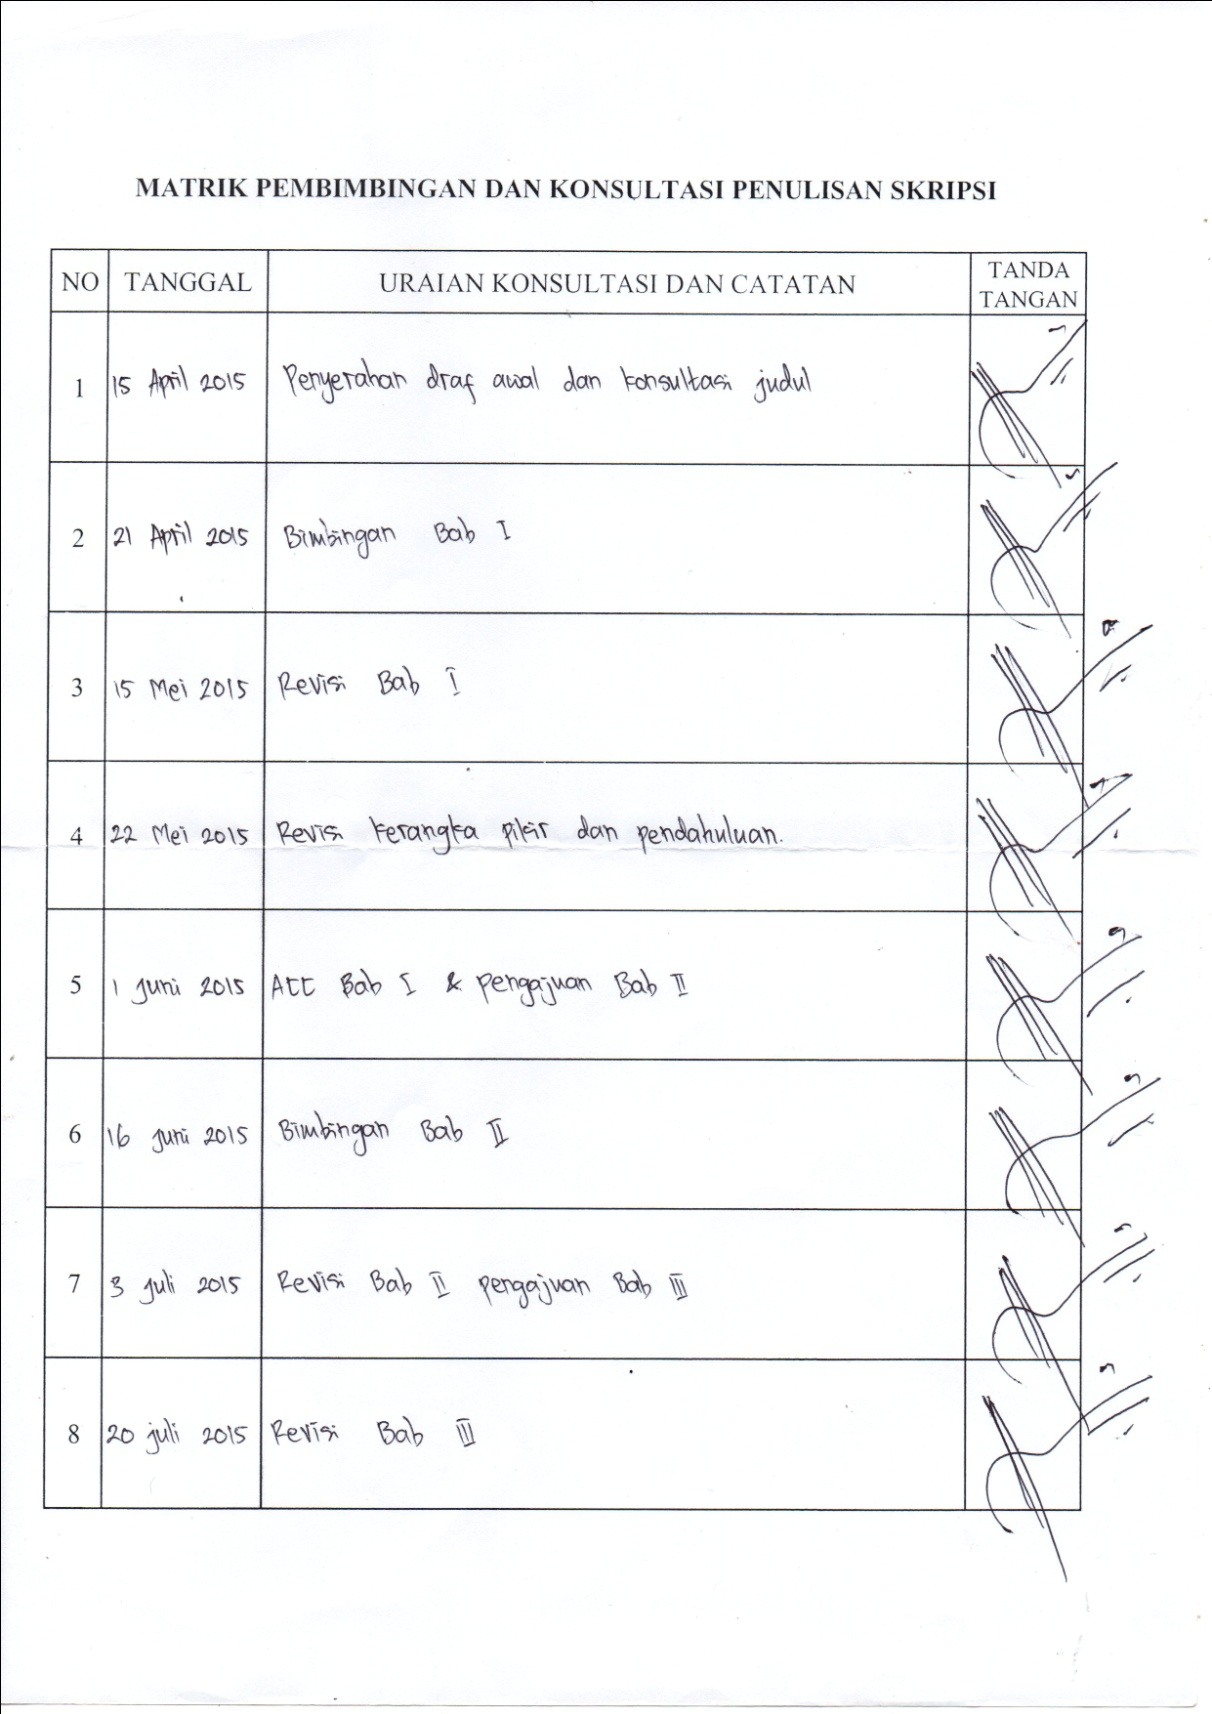 MATRIK PEMBIMBINGAN DAN KONSULTASI PENULISAN SKRIPSI
NO TANGGAL URAIAN KONSULTASI DAN CATATAN TANDA TANGAN
1 15 April 2015 Penyerahan draf awal dan konsultasi judul
2 21 April 2015 Bimbingan Bab I
3 15 Mei 2015 Revisi Bab I
4 22 Mei 2015 Revisi kerangka pikir dan pendahuluan.
5 1 Juni 2015 ACC Bab I & pengajuan Bab II
6 16 Juni 2015 Bimbingan Bab II
7 3 Juli 2015 Revisi Bab II pengajuan Bab III
8 20 Juli 2015 Revisi Bab III